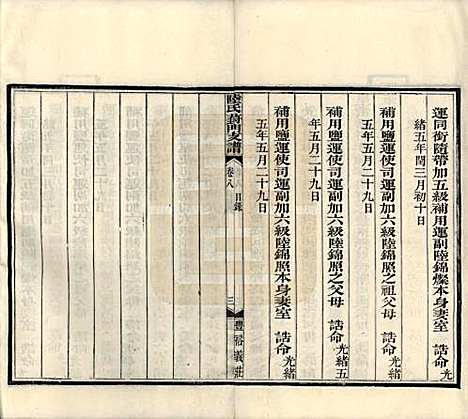 運同銜隨帶加五級補用運副陸錦燦本身妻室　誥命光
緒五年閏三月初十日
補用鹽運使司運副加六級陸錦照之祖父母　誥命光緒
五年五月二十九日
補用鹽運使司運副加六級陸錦照之父母　誥命光緒五
年五月二十九日
補用鹽運使司運副加六級陸錦照本身妻室　誥命光緒
五年五月二十九日
陸氏葑門支譜　卷八　目錄　三　豐裕義莊